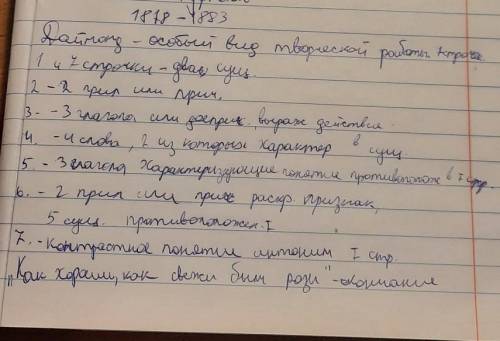 1878 - 1883
Даймонд - особый вид творческой работы 7 строк
1 и 7 строчки - два сущ.
2 - 2 прил или прич.
3. - 3 глагола или дееприч, выраж действия
4. - 4 слова, 2 из которых характер в сущ
5. - 3 глагола характеризующие понятие противополож в I стр
6. - 2 прил или прич раскр. признак,
5 сущ. противоположен. I
7. - контрастное понятие антоним I стр.
"Как хороши, как свежи были розы" -